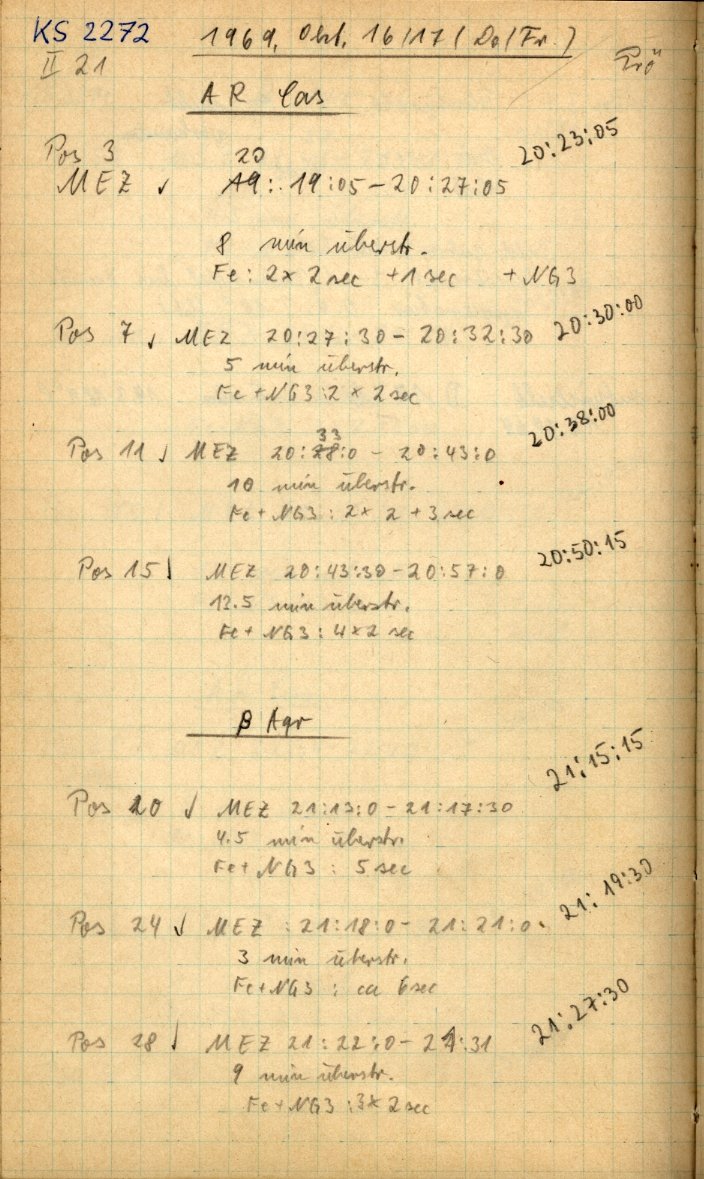 KS 2272 1969, Okt. 16/17 (Do/Fr.)
II 21
AR Cas
Pos 3 20 20:23:05
MEZ ✓ 19:19:05 – 20:27:05
8 min überstr.
Fe: 2 x 2 sec + 1 sec + NG3
Pos 7 ✓ MEZ 20:27:30 – 20:32:30 20:30:00
5 min überstr.
Fe + NG3: 2 x 2 sec
33 20:38:00
Pos 11 ✓ MEZ 20:28:0 – 20:43:0
10 min überstr.
Fe + NG3: 2 x 2 + 3 sec
Pos 15 ✓ MEZ 20:43:30 – 20:57:0 20:50:15
13.5 min überstr.
Fe + NG3: 4 x 2 sec
β Aqr
21:15:15
Pos 20 ✓ MEZ 21:13:0 – 21:17:30
4.5 min überstr.
Fe + NG3: 5 sec
Pos 24 ✓ MEZ: 21:18:0 – 21:21:0. 21:19:30
3 min überstr.
Fe + NG3: ca 6 sec
Pos 28 ✓ MEZ 21:22:0 – 21:31 21:27:30
9 min überstr.
Fe + NG3: 3 x 2 sec